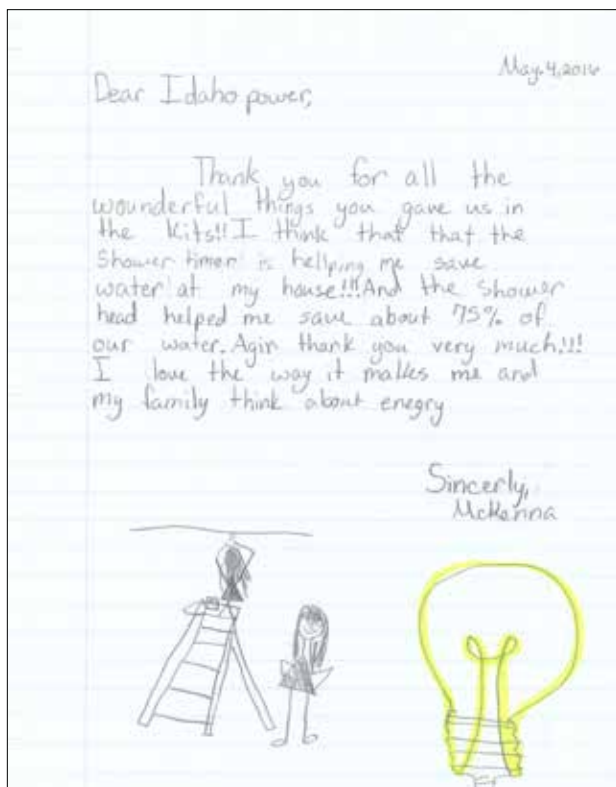 May.4,2016
Dear Idaho power,
Thank you for all the
wounderful things you gave us in
the Kits!! I think that that the
Shower timer is hellping me save
water at my house!!! And the shower
head helped me save about 75% of
our water. Agin thank you very much!!!
I love the way it makes me and
my family think about enegry
Sincerly,
McKenna